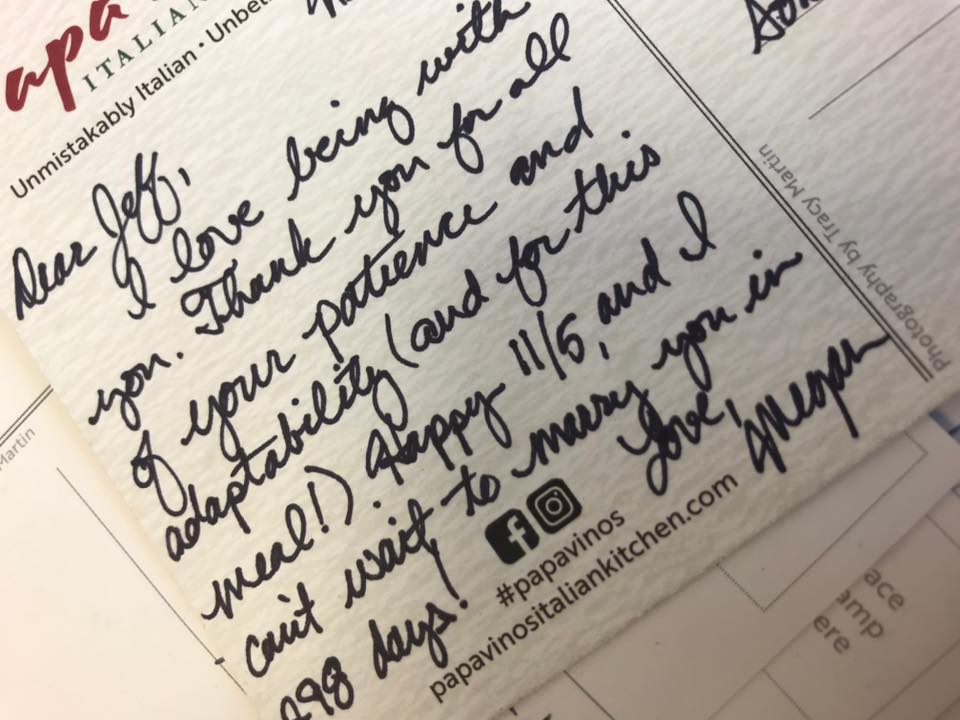 apa
ITALIAN
Unmistakably Italian · Unbel
Dear Jeff,
I love being with
you. Thank you for all
of your patience and
adaptability (and for this
meal!). Happy 11/5, and I
can't wait to marry you in
298 days!
Love,
Megan
#papavinos
papavinositaliankitchen.com
Photography by Tracy Martin
Martin
ace
amp
ere